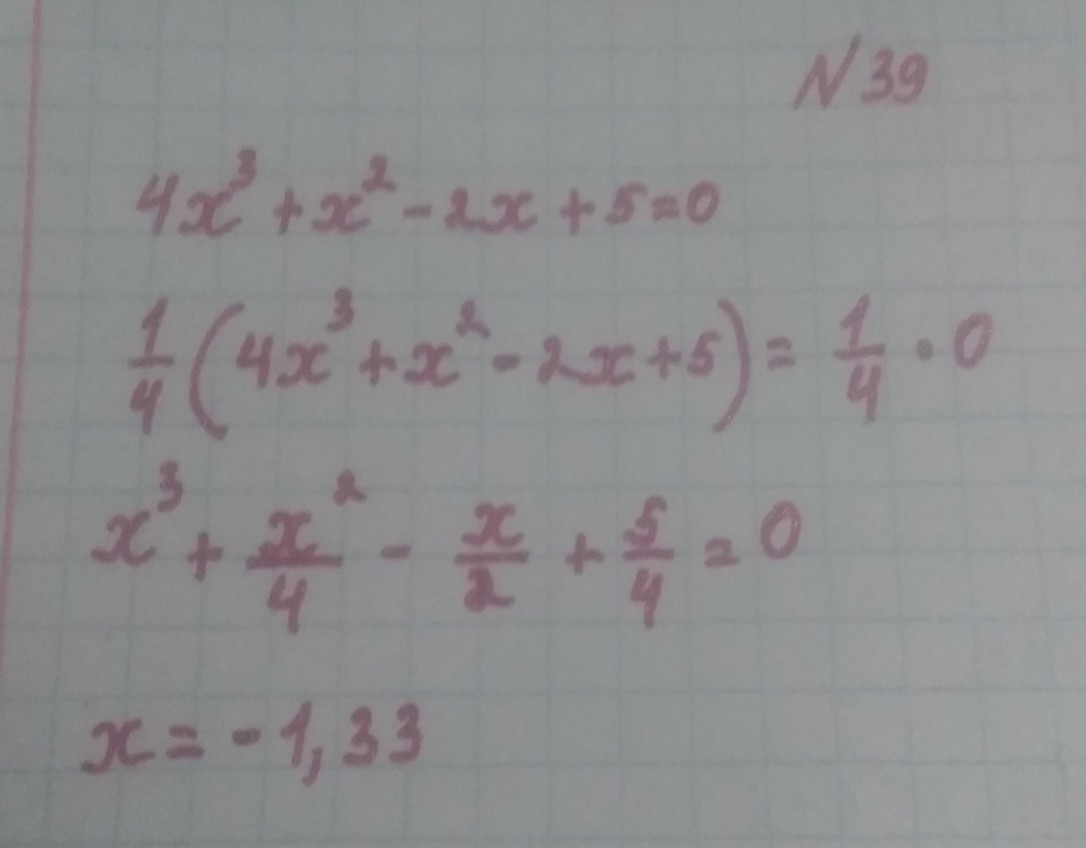 N 39
4x³ + x² - 2x + 5 = 0
1/4 (4x³ + x² - 2x + 5) = 1/4 · 0
x³ + x²/4 - x/2 + 5/4 = 0
x = -1,33